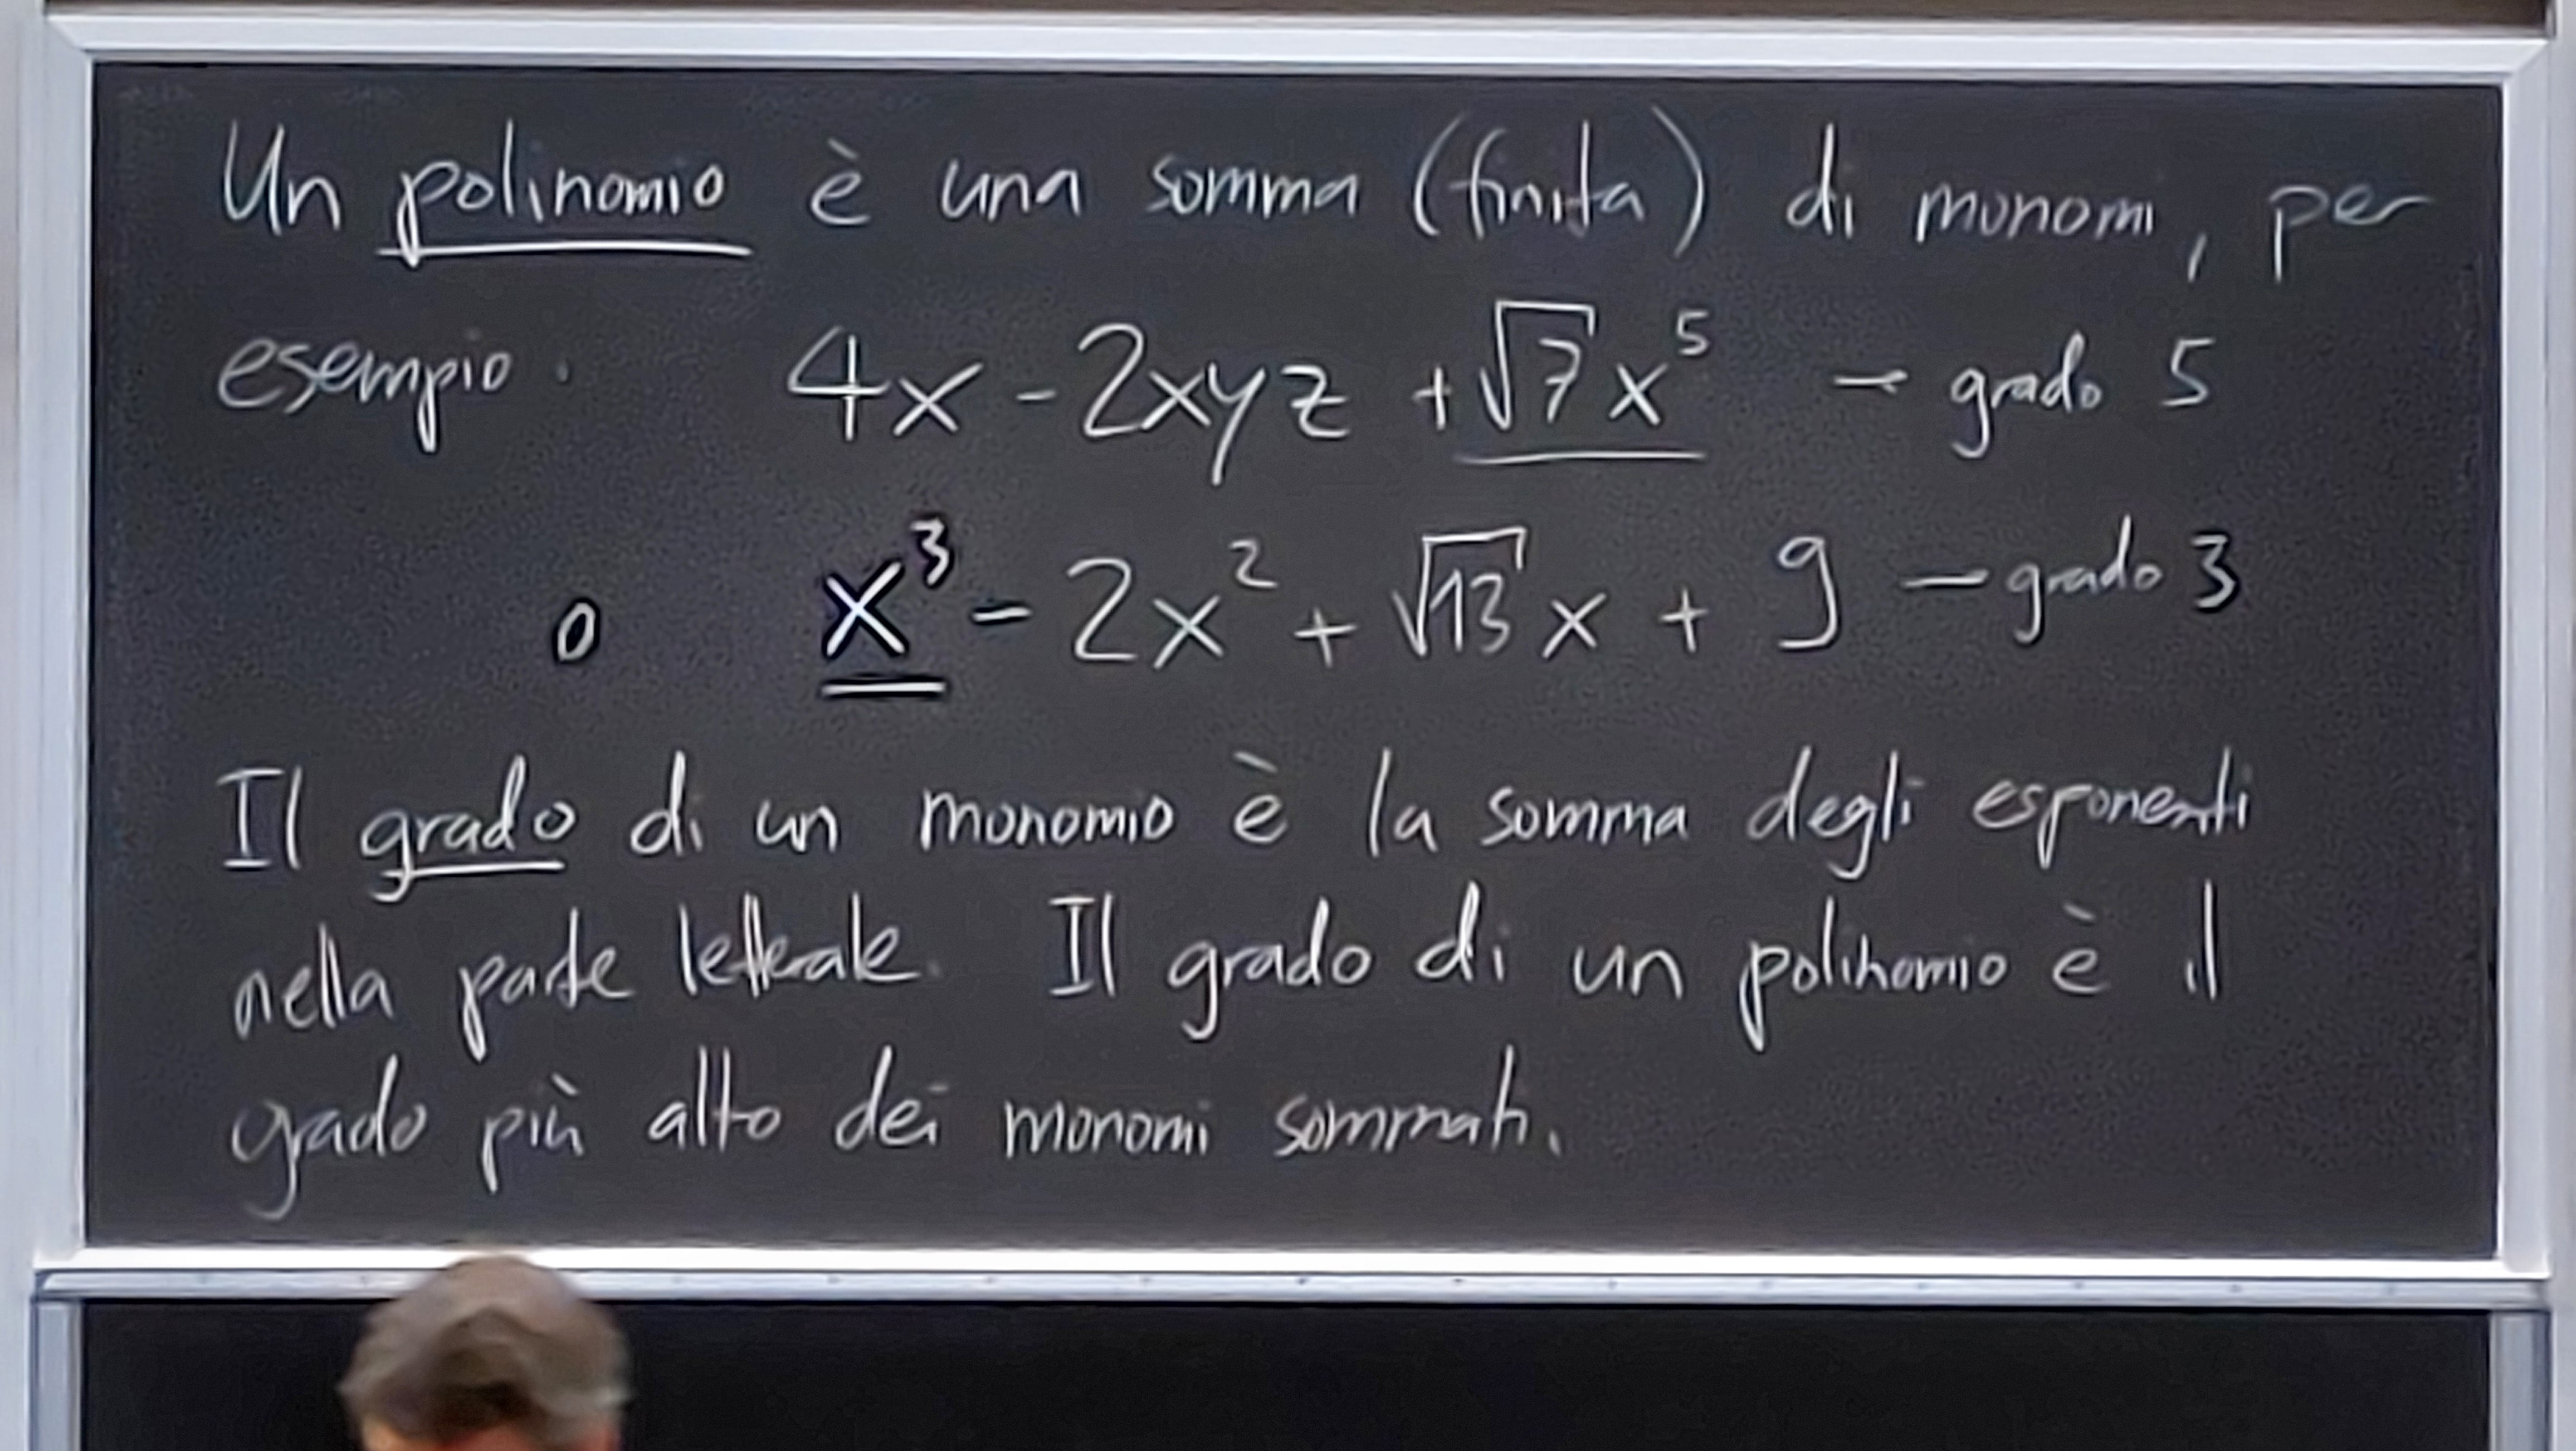 Un polinomio è una somma (finita) di monomi, per
esempio. 4x - 2xyz + √7 x⁵ - grado 5
o x³ - 2x² + √13 x + 9 - grado 3
Il grado di un monomio è la somma degli esponenti
nella parte letterale. Il grado di un polinomio è il
grado più alto dei monomi sommati.